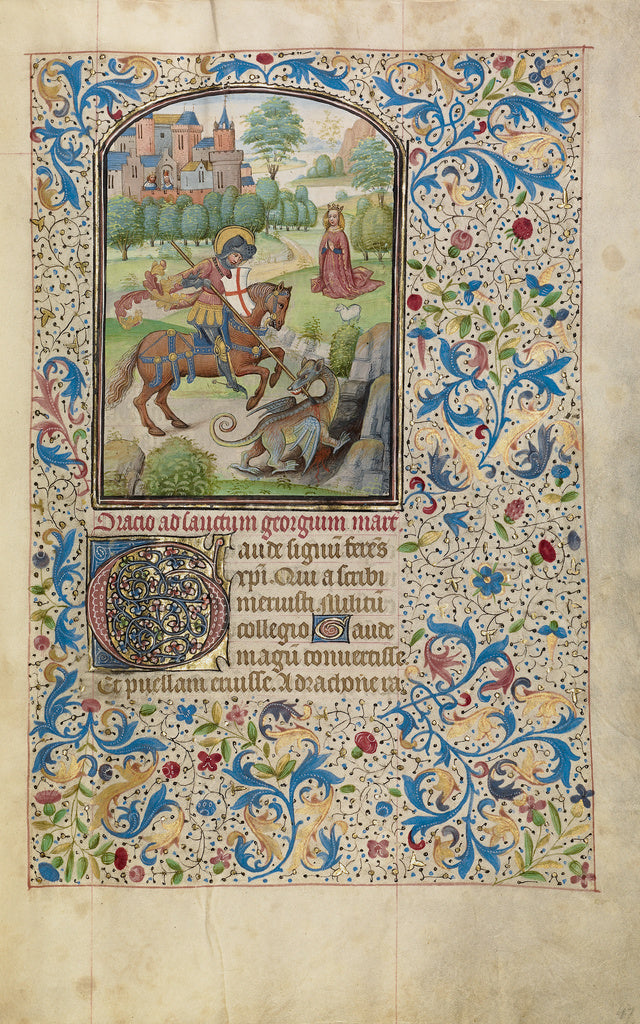 Oracio ad sanctum georgium mart
Gaude signū ferēs
xp̄i. Qui a scribi
meruisti. Militū
collegio Gaude
magū convertisse
Et puellam eruisse. A drachone ra